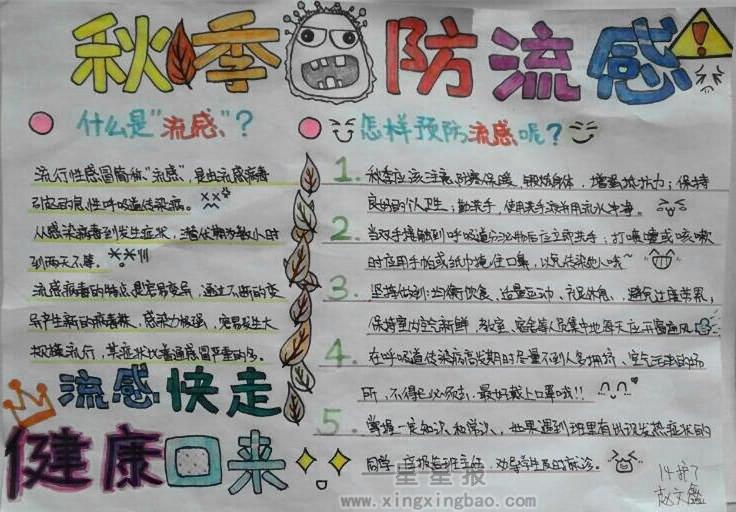 秋季防流感
什么是"流感"?
流行性感冒简称"流感",是由流感病毒
引起的急性呼吸道传染病。
从感染病毒到发生症状,潜伏期为数小时
到两天不等。
流感病毒的特点是容易变异,通过不断的变
异产生新的病毒株,感染力极强,容易发生大
规模流行,其症状比普通感冒严重的多。
流感快走
健康回来
怎样预防流感呢?
1. 秋季应该注意防寒保暖,锻炼身体,增强抵抗力;保持
良好的个人卫生;勤洗手,使用洗手液并用流水冲净。
2. 当双手接触到呼吸道分泌物后应立即洗手;打喷嚏或咳嗽
时应用手帕或纸巾掩住口鼻,以免传染他人哦~
3. 坚持做到:均衡饮食、适量运动、充足休息,避免过度劳累,
保持室内空气新鲜,教室、宿舍等人员集中地每天应开窗通风
4. 在呼吸道传染病高发期时尽量不到人多拥挤、空气污浊的场
所,不得已必须去,最好戴上口罩哦!!
5. 掌握一定知识和常识,如果遇到班里有出现发热症状的
同学,应报告班主任,劝导学生及时就诊。
14护7
赵文鑫
一星星报
www.xingxingbao.com